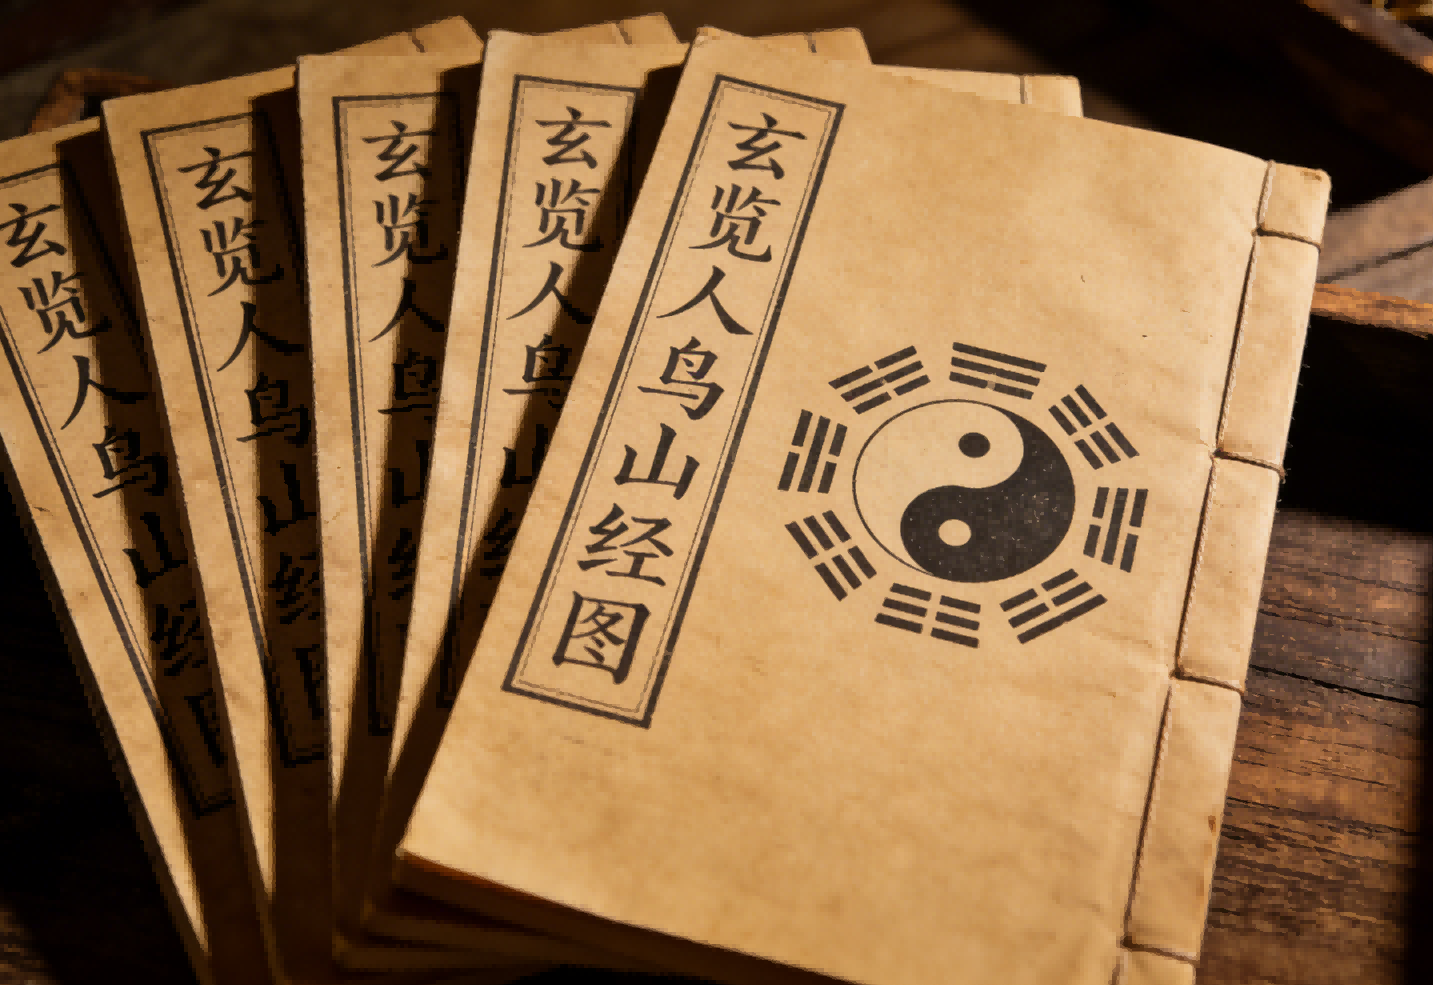 玄览人鸟山经图
玄览人鸟山
玄览人鸟山经
玄览人鸟山经
玄览人鸟山经